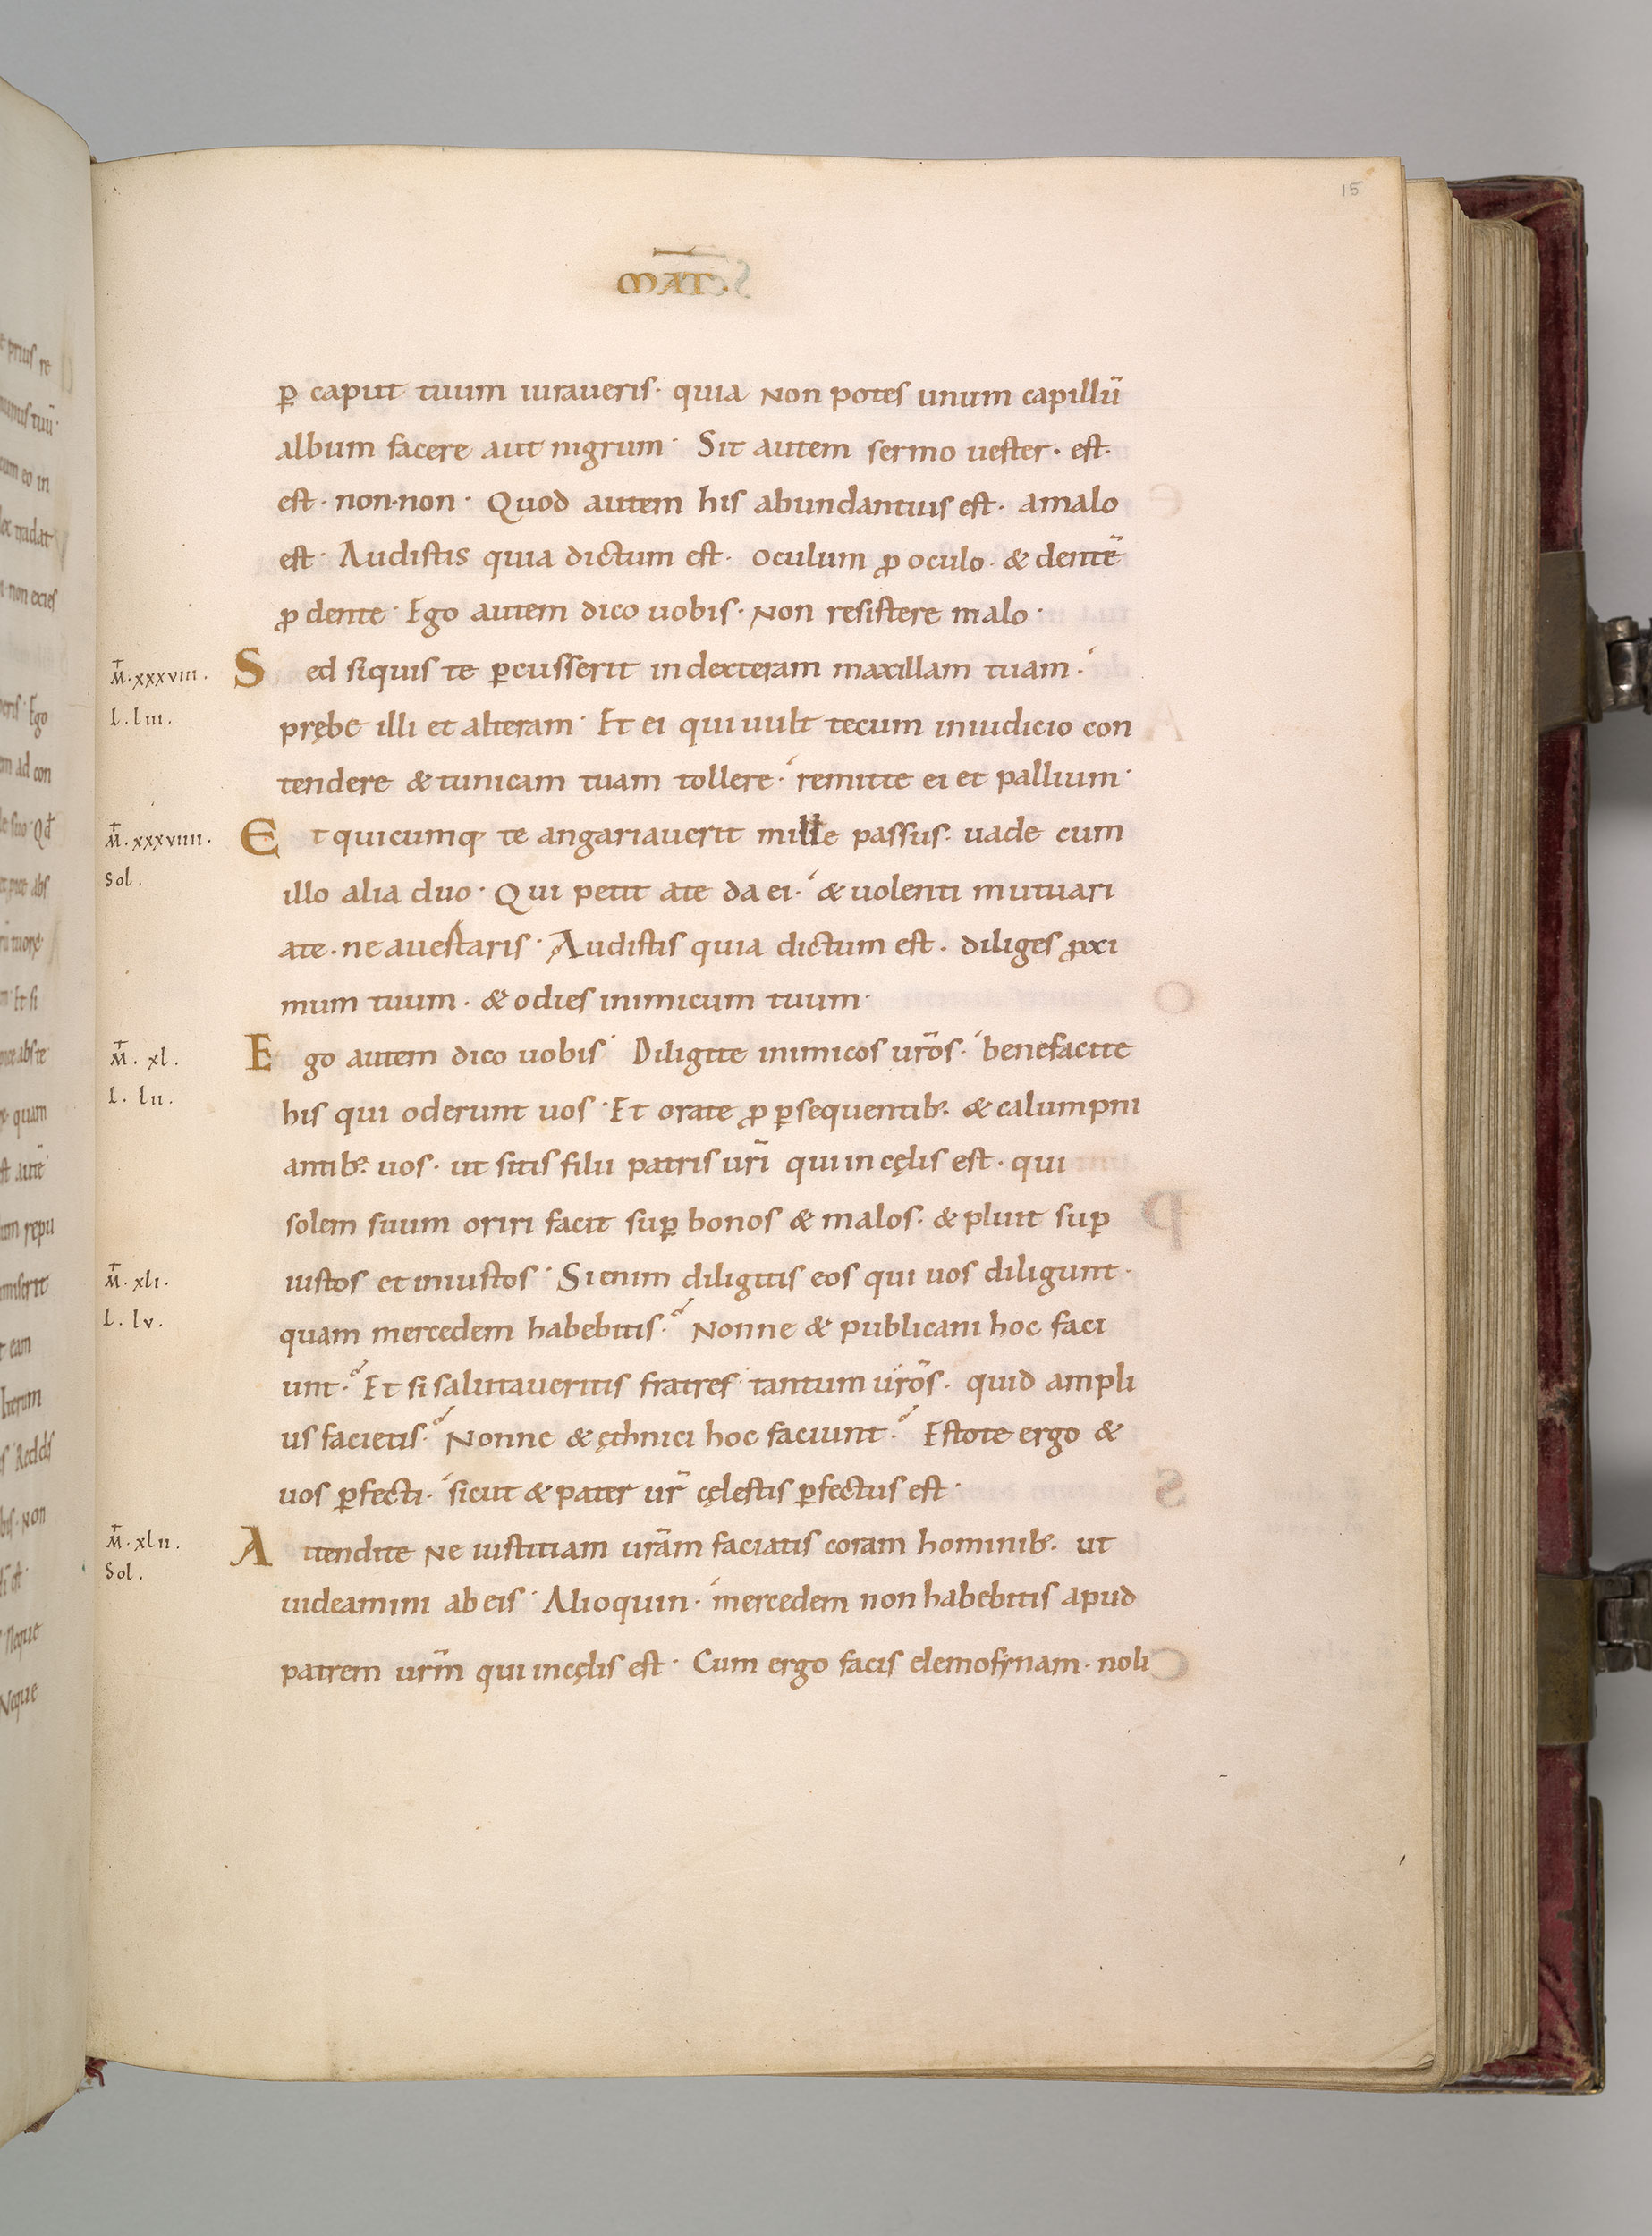 15
ꝑ caput tuum iuraueris· quia non potes unum capillū
album facere aut nigrum· Sit autem sermo uester· est·
est· non·non· Quod autem his abundantius est· amalo
est· Audistis quia dictum est· oculum ꝓ oculo· & dentē
ꝓ dente· Ego autem dico uobis· Non resistere malo·
M̄·xxxviii·
L·liii·
Sed siquis te ꝑcusserit indexteram maxillam tuam·
prębe illi et alteram· Et ei qui uult tecum iniudicio con
tendere & tunicam tuam tollere· remitte ei et pallium·
M̄·xxxviiii·
Sol·
Et quicumq; te angariauerit mille passus· uade cum
illo alia duo· Qui petit ate da ei· & uolenti mutuari
ate· ne auertaris· Audistis quia dictum est· diliges ꝓxi
mum tuum· & odies inimicum tuum·
M̄· xl·
L· lii·
Ego autem dico uobis· Diligite inimicos ur̄os· benefacite
his qui oderunt uos· Et orate ꝓ ꝑsequentib; & calumpni
antib; uos· ut sitis filii patris ur̄i qui in cęlis est· qui
solem suum oriri facit suꝑ bonos & malos· & pluit suꝑ
iustos et iniustos· Si enim diligitis eos qui uos diligunt·
M̄·xli·
L·lv·
quam mercedem habebitis? Nonne & publicani hoc faci
unt? Et si salutaueritis fratres tantum ur̄os· quid ampli
us facietis? Nonne & ęthnici hoc faciunt? Estote ergo &
uos ꝑfecti· sicut & pater ur̄ cęlestis ꝑfectus est·
M̄·xlii·
Sol·
Attendite ne iustitiam ur̄am faciatis coram hominib; ut
uideamini ab eis· Alioquin· mercedem non habebitis apud
patrem ur̄m qui incęlis est· Cum ergo facis elemosynam· noli